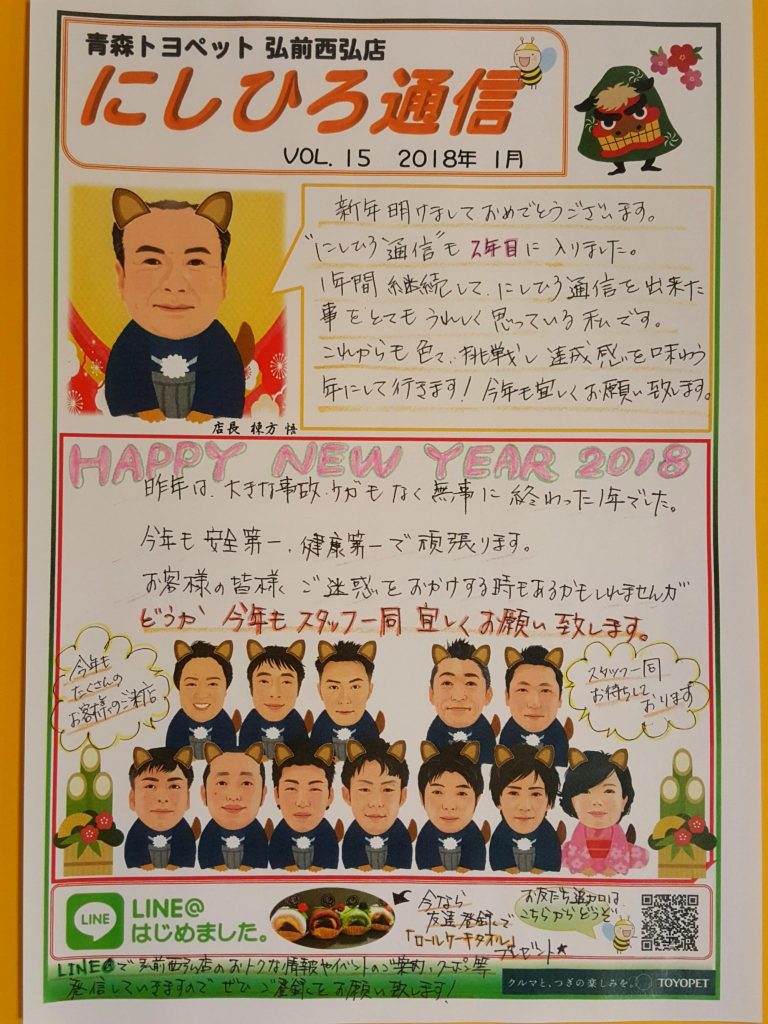 青森トヨペット 弘前西弘店
にしひろ通信
VOL. 15 2018年 1月
新年明けましておめでとうございます。
"にしひろ通信"も2年目に入りました。
1年間継続して、にしひろ通信を出来た
事をとてもうれしく思っている私です。
これからも色々、挑戦し達成感を味わう
年にして行きます！今年も宜しくお願い致します。
店長 棟方 悟
HAPPY NEW YEAR 2018
昨年は、大きな事故、ケガもなく無事に終わった1年でした。
今年も安全第一、健康第一で頑張ります。
お客様の皆様へご迷惑をおかけする時もあるかもしれませんが
どうか 今年もスタッフ一同 宜しくお願い致します。
今年も
たくさんの
お客様のご来店
スタッフ一同
お待ちして
おります
LINE
LINE@
はじめました。
今なら
友達登録で
「ロールケーキタオル」
プレゼント★
お友だち追加は
こちらからどうぞ
LINE@で弘前西弘店のおトクな情報やイベントのご案内、クーポン等
発信していきますので ぜひ ご登録をお願い致します！
クルマと、つぎの楽しみを。 TOYOPET